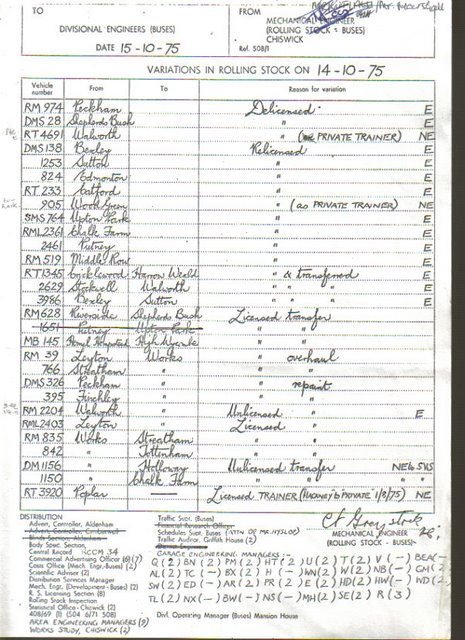 TO
DIVISIONAL ENGINEERS (BUSES)
DATE 15-10-75
FROM
MECHANICAL ENGINEER
(ROLLING STOCK - BUSES)
CHISWICK
Ref. 508/1
VARIATIONS IN ROLLING STOCK ON 14-10-75
Vehicle number From To Reason for variation
RM 974 Peckham Delicensed E
DMS 28 Shepherds Bush " E
RT 4691 Walworth " (PRIVATE TRAINER) NE
DMS 138 Bexley Relicensed E
1253 Sutton " E
824 Edmonton " E
RT 233 Catford " E
905 Wood Green " (as PRIVATE TRAINER) NE
SMS 764 Upton Park " E
RML 2361 Chalk Farm " E
2461 Putney " E
RM 519 Middle Row " E
RT 1345 Cricklewood Harrow Weald " & transferred E
2629 Stockwell Walworth " " " E
3986 Bexley Sutton " " " E
RM 628 Riverside Shepherds Bush Licensed transfer
1651 Putney Upton Park " "
MB 145 Hemel Hempstead High Wycombe " "
RM 39 Leyton Works " overhaul
766 Streatham " " "
DMS 326 Peckham " " repaint
395 Finchley " " "
RM 2204 Walworth " Unlicensed " E
RML 2403 Leyton " Licensed "
RM 835 Works Streatham " "
842 " Tottenham " "
DM 1156 " Holloway Unlicensed transfer NE to SVS
1150 " Chalk Farm " " "
RT 3920 Poplar — Licensed TRAINER (HACKNEY to PRIVATE 1/8/75) NE
DISTRIBUTION
Advert. Controller, Aldenham
Body Spec. Section
Central Record RCOM 34
Commercial Advertising Officer (7)
Costs Office (Mech. Engr.-Buses) (2)
Scientific Adviser (2)
Distribution Services Manager
Mech. Eng. (Development - Buses)
R. S. Licensing Section (8)
Rolling Stock Inspector
Statistical Office - Chiswick (2)
AREA ENGINEERING MANAGERS (9)
WORKS STUDY, CHISWICK (2)
Traffic Supt. (Buses)
Financial Research Officer
Schedules Supt. (Buses) (ATTN OF MR HYSLOP)
Traffic Auditor, Griffith House (2)
MECHANICAL ENGINEER
(ROLLING STOCK - BUSES)
GARAGE ENGINEERING MANAGERS :-
Divl. Operating Manager (Buses) Mansion House